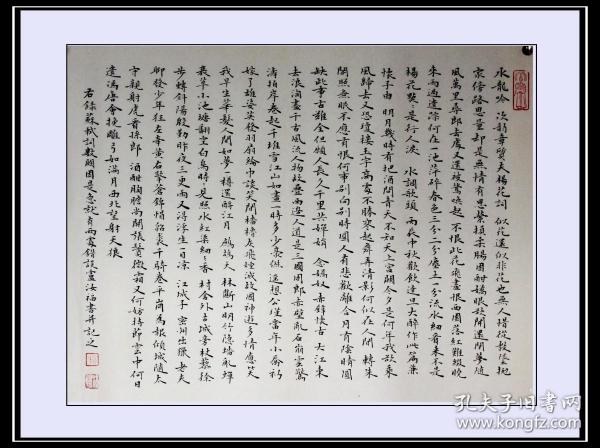 水龍吟 次韵章質夫楊花詞 似花還似非花也無人惜從教墜抛
家傍路思量却是無情有思縈損柔腸困酣嬌眼欲開還閉夢隨
風萬里尋郎去處又還被鶯喚起 不恨此花飛盡恨西園落紅難綴曉
來雨過遺踪何在一池萍碎春色三分二分塵土一分流水細看來不是
楊花點點是行人淚 水調歌頭 丙辰中秋歡飲達旦大醉作此篇兼
懷子由 明月幾時有把酒問青天不知天上宮闕今夕是何年我欲乘
風歸去又恐瓊樓玉宇高處不勝寒起舞弄清影何似在人間 轉朱
閣照無眠不應有恨何事向別時圓人有悲歡離合月有陰晴圓
缺此事古難全但願人長久千里共嬋娟 念嬌奴 赤壁懷古 大江東
去浪淘盡千古風流人物故壘西邊人道是三國周郎赤壁亂石崩雲驚
濤拍岸卷起千堆雪江山如畫一時多少豪傑 遥想公瑾當年小喬初
嫁了雄姿英發羽扇綸巾談笑間檣櫓灰飛煙滅故國神遊多情應笑
我早生華髮人間如夢一樽還酹江月 鷓鴣天 林斷山明竹隱墻亂蟬
衰草小池塘翻空白鳥時時見照水紅蕖細細香 村舍外古城旁杖藜徐
步轉斜陽殷勤昨夜三更雨又得浮生一日凉 江城子 密州出獵 老夫
聊發少年狂左牽黄右擎蒼錦帽貂裘千騎卷平岡爲報傾城隨太
守親射虎看孫郎 酒酣胸膽尚開張鬢微霜又何妨持節雲中何日
遣馮唐會挽雕弓如滿月西北望射天狼
右録蘇軾詞數闋因是急就有兩處錯誤盧汝福書并記之
孔夫子旧书网
www.kongfz.com